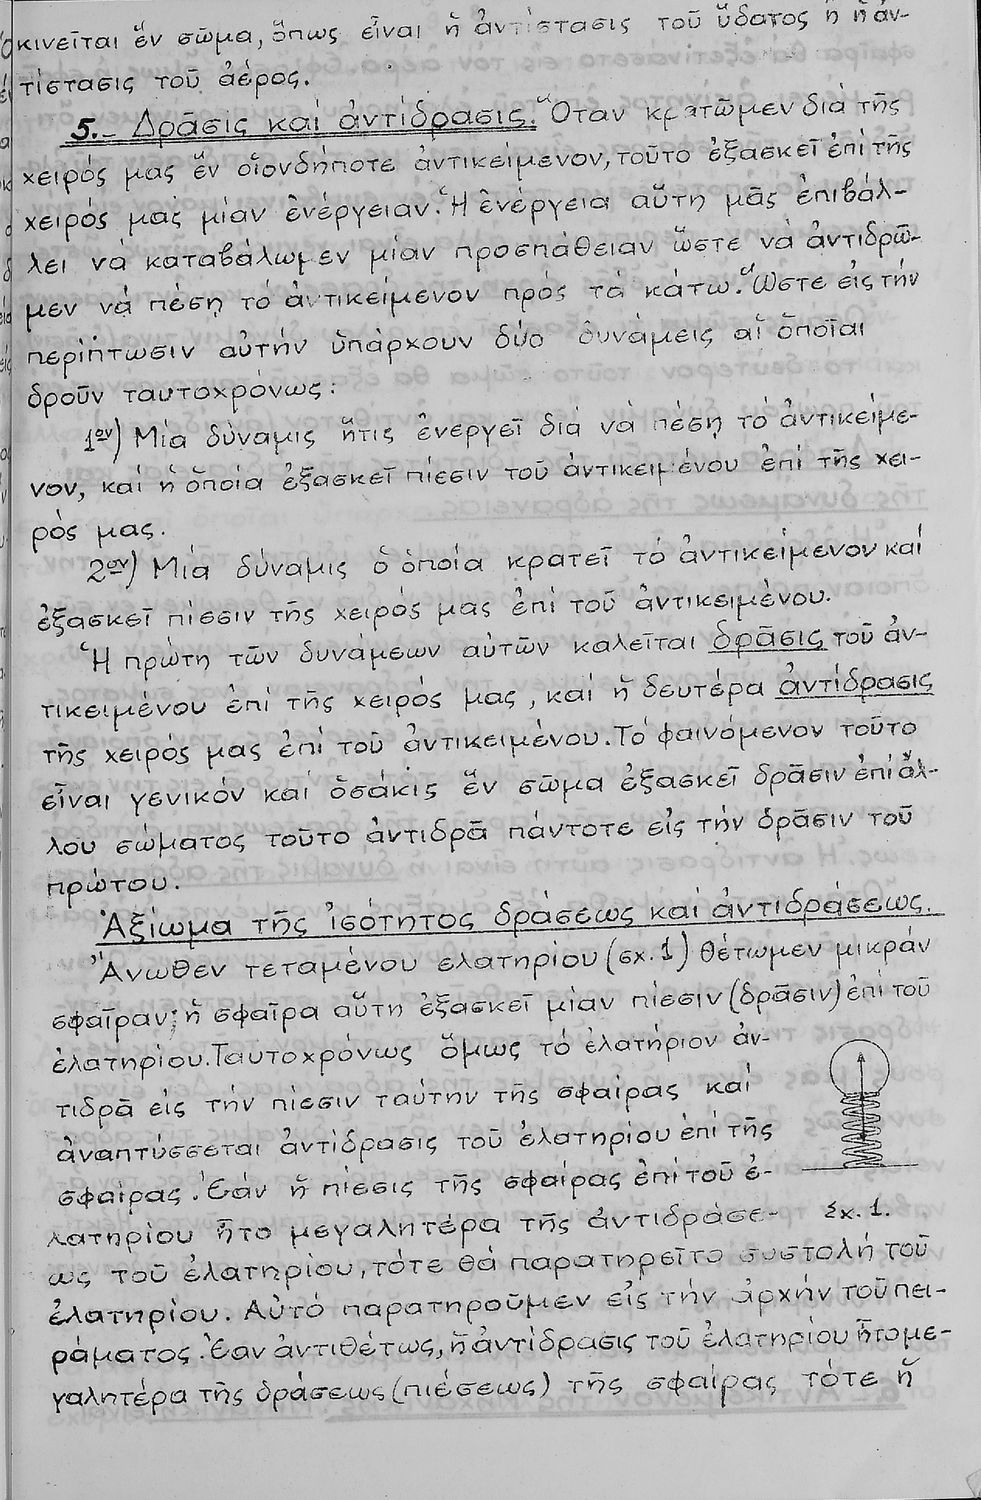 κινεῖται ἕν σῶμα, ὅπως εἶναι ἡ ἀντίστασις τοῦ ὕδατος ἤ ἡ ἀν-
τίστασις τοῦ ἀέρος.
5.- Δρᾶσις καί ἀντίδρασις. Ὅταν κρατῶμεν διά τῆς
χειρός μας ἕν οἱονδήποτε ἀντικείμενον, τοῦτο ἐξασκεῖ ἐπί τῆς
χειρός μας μίαν ἐνέργειαν. Ἡ ἐνέργεια αὕτη μᾶς ἐπιβάλ-
λει νά καταβάλωμεν μίαν προσπάθειαν ὥστε νά ἀντιδρῶ-
μεν νά πέσῃ τό ἀντικείμενον πρός τά κάτω. Ὥστε εἰς τήν
περίπτωσιν αὐτήν ὑπάρχουν δύο δυνάμεις αἱ ὁποῖαι
δροῦν ταυτοχρόνως:
1ον) Μία δύναμις ἥτις ἐνεργεῖ διά νά πέσῃ τό ἀντικείμε-
νον, καί ἡ ὁποία ἐξασκεῖ πίεσιν τοῦ ἀντικειμένου ἐπί τῆς χει-
ρός μας.
2ον) Μία δύναμις ὁ ὁποία κρατεῖ τό ἀντικείμενον καί
ἐξασκεῖ πίεσιν τῆς χειρός μας ἐπί τοῦ ἀντικειμένου.
Ἡ πρώτη τῶν δυνάμεων αὐτῶν καλεῖται δρᾶσις τοῦ ἀν-
τικειμένου ἐπί τῆς χειρός μας, καί ἡ δευτέρα ἀντίδρασις
τῆς χειρός μας ἐπί τοῦ ἀντικειμένου. Τό φαινόμενον τοῦτο
εἶναι γενικόν καί ὁσάκις ἕν σῶμα ἐξασκεῖ δρᾶσιν ἐπί ἄλ-
λου σώματος τοῦτο ἀντιδρᾶ πάντοτε εἰς τήν δρᾶσιν τοῦ
πρώτου.
Ἀξίωμα τῆς ἰσότητος δράσεως καί ἀντιδράσεως.
Ἄνωθεν τεταμένου ελατηρίου (σχ. 1) θέτωμεν μικράν
σφαῖραν; ἡ σφαῖρα αὕτη ἐξασκεῖ μίαν πίεσιν (δρᾶσιν) ἐπί τοῦ
ἐλατηρίου. Ταυτοχρόνως ὅμως τό ἐλατήριον ἀν-
τιδρᾶ εἰς τήν πίεσιν ταύτην τῆς σφαίρας καί
ἀναπτύσσεται ἀντίδρασις τοῦ ἐλατηρίου ἐπί τῆς
σφαίρας. Ἐάν ἡ πίεσις τῆς σφαίρας ἐπί τοῦ ἐ-
λατηρίου ἦτο μεγαλητέρα τῆς ἀντιδράσε-
Σχ. 1.
ως τοῦ ἐλατηρίου, τότε θά παρατηρεῖτο συστολή τοῦ
ἐλατηρίου. Αὐτό παρατηροῦμεν εἰς τήν ἀρχήν τοῦ πει-
ράματος. Ἐαν ἀντιθέτως, ἡ ἀντίδρασις τοῦ ἐλατηρίου ἦτο με-
γαλητέρα τῆς δράσεως (πιέσεως) τῆς σφαίρας τότε ἡ